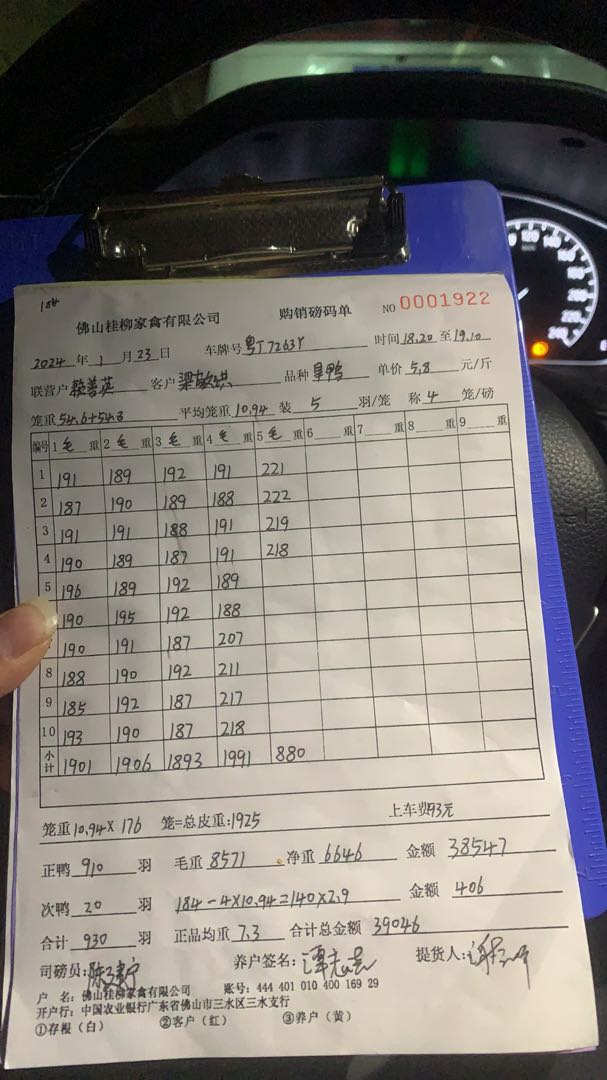 184
佛山桂柳家禽有限公司 购销磅码单 NO 0001922
2024年1月23日 车牌号粤T7263Y 时间18.20至19.10
联营户 赖善英 客户 品种 单价5.8元/斤
笼重54.6+54.8 平均笼重10.94 装5羽/笼 称4笼/磅
编号 1毛重 2毛重 3毛重 4毛重 5毛重 6重 7重 8重 9重
1 191 189 192 191 221
2 187 190 189 188 222
3 191 191 188 191 219
4 190 189 187 191 218
5 196 189 192 189
190 195 192 188
190 191 187 207
8 188 190 192 211
9 185 192 187 217
10 193 190 187 218
小计 1901 1906 1893 1991 880
笼重10.94×176 笼=总皮重:1925 上车费93元
正鸭910羽 毛重8571 净重6646 金额38547
次鸭20羽 184-4×10.94=140×2.9 金额406
合计930羽 正品均重7.3 合计总金额39046
司磅员: 养户签名: 提货人:
户 名:佛山桂柳家禽有限公司 账号:444 401 010 400 169 29
开户行:中国农业银行广东省佛山市三水区三水支行
①存根(白) ②客户(红) ③养户(黄)